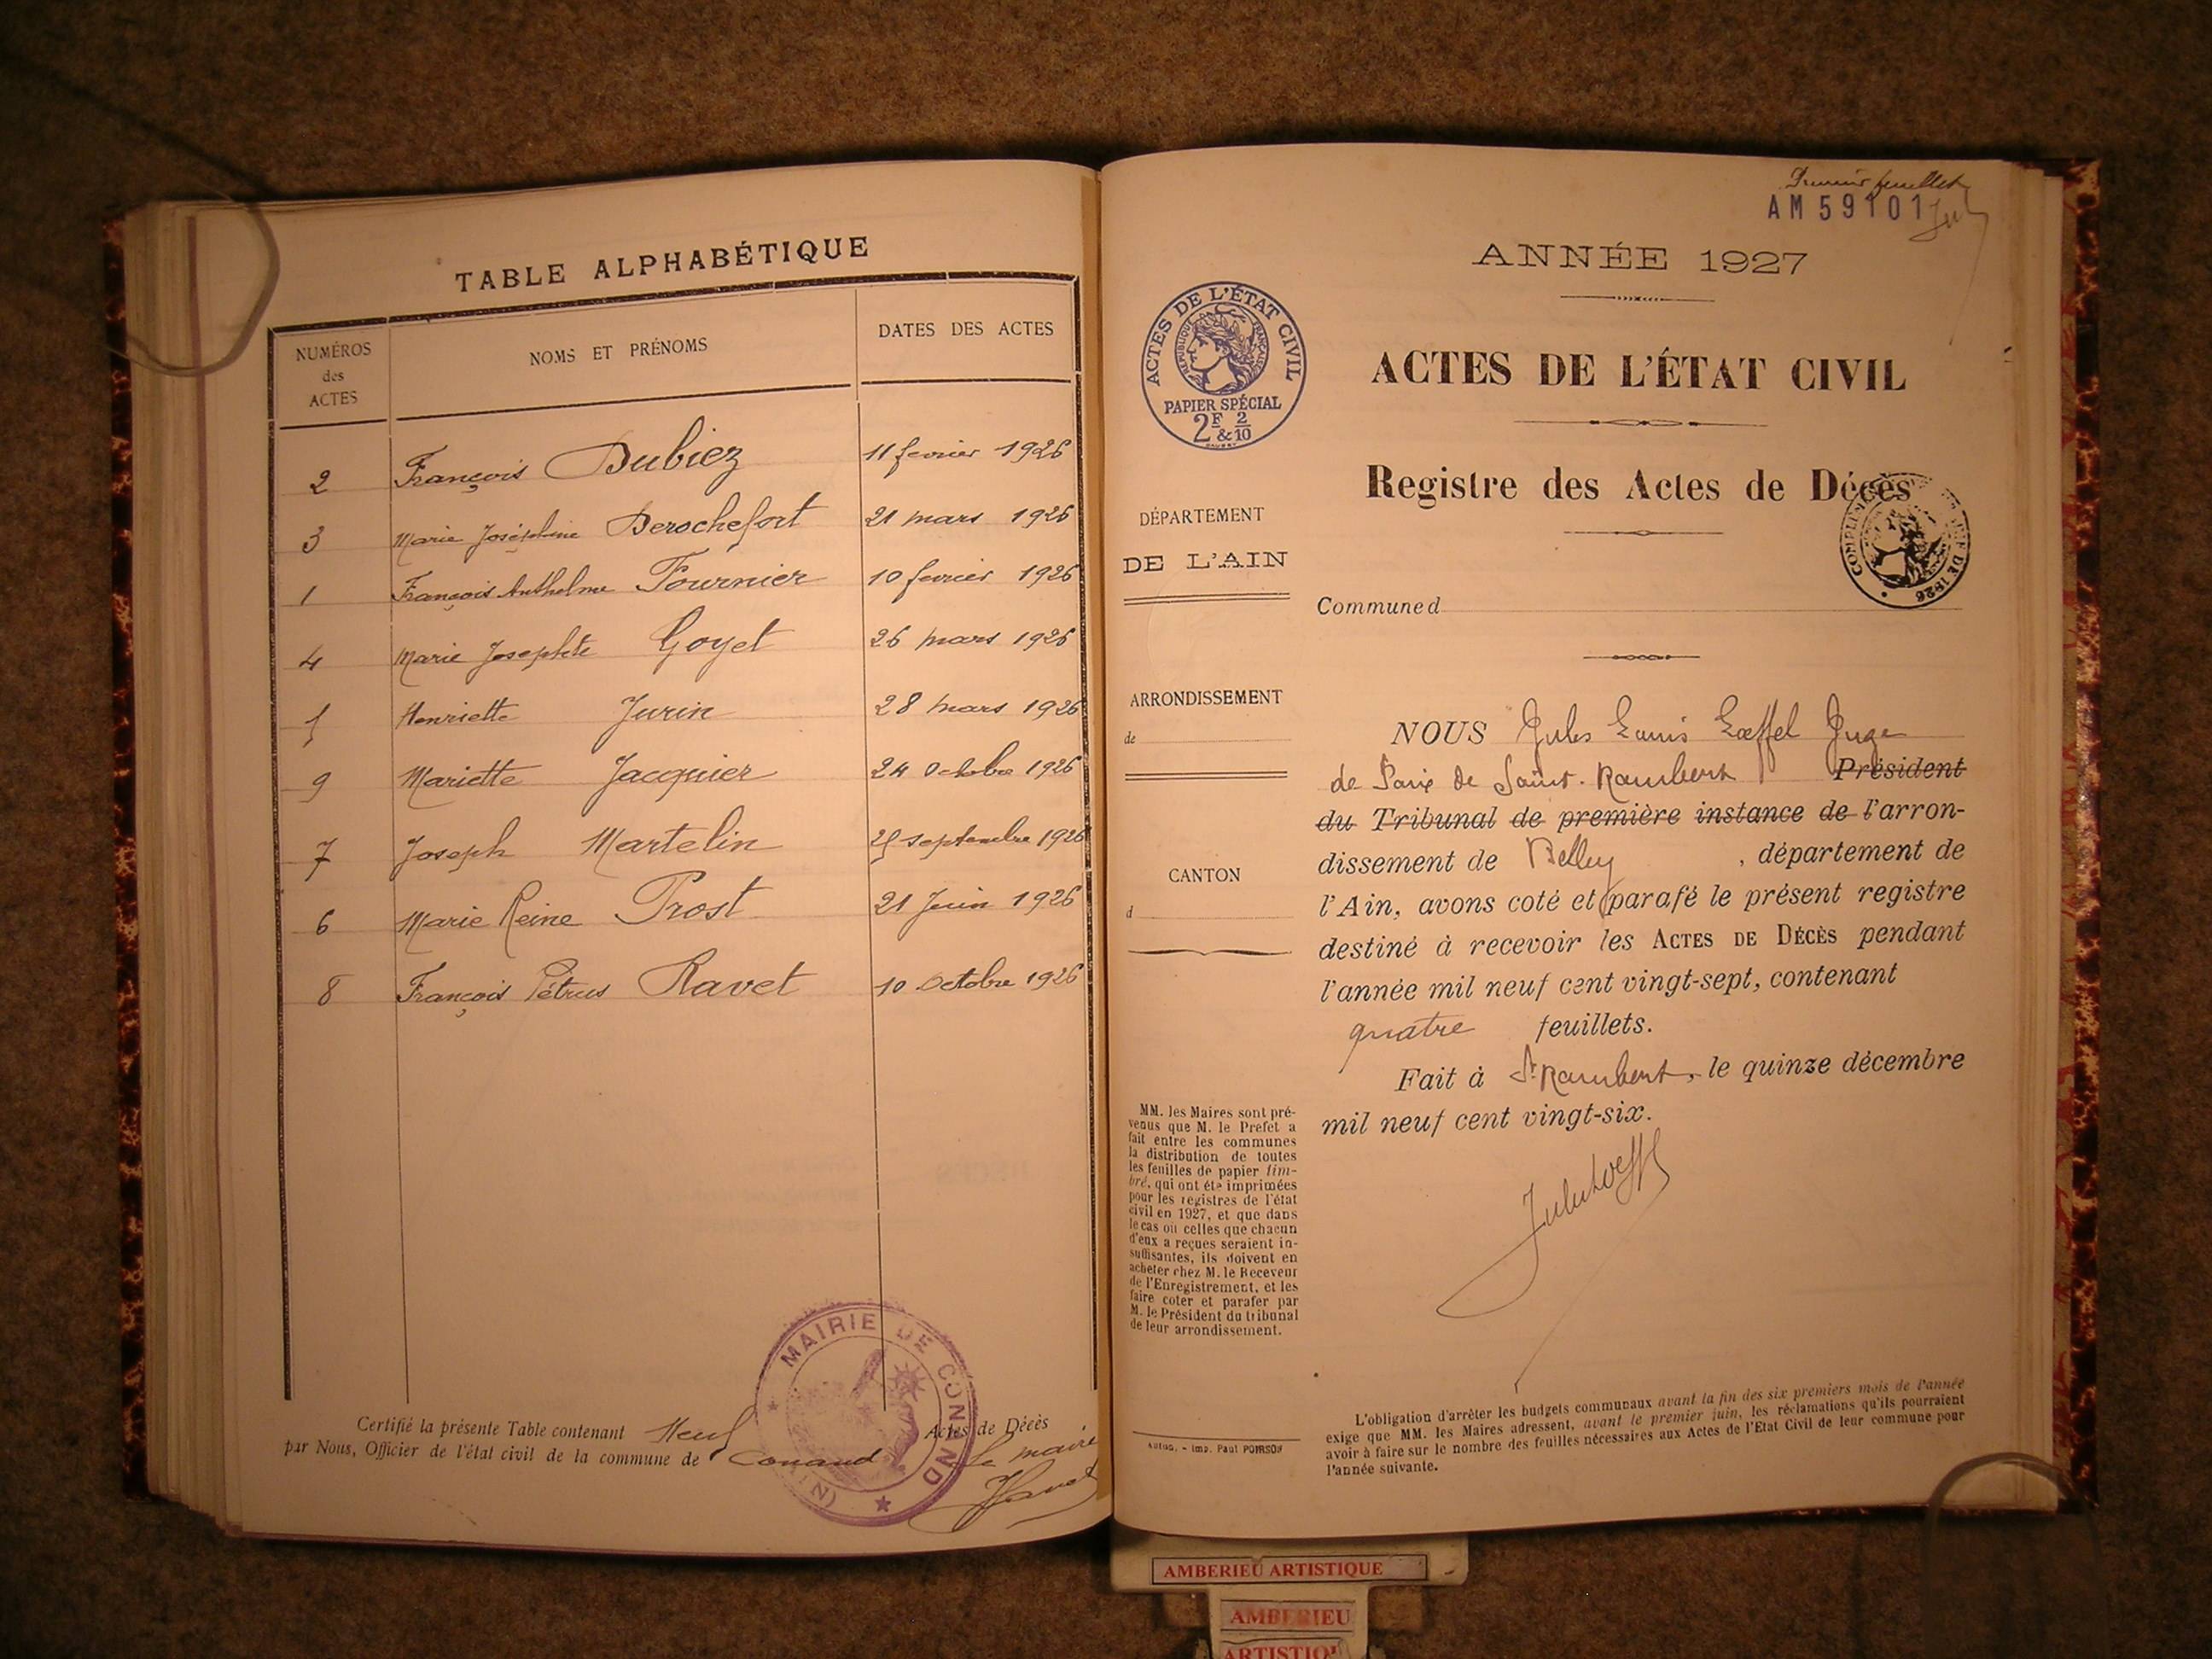 TABLE ALPHABÉTIQUE
NUMÉROS des ACTES
NOMS ET PRÉNOMS
DATES DES ACTES
2 François Dubiez 11 fevrier 1926
3 Marie Joséphine Derochefort 21 mars 1926
1 François Anthelme Fournier 10 fevrier 1926
4 Marie Josephte Goyet 26 mars 1926
5 Henriette Jurin 28 mars 1926
9 Mariette Jacquier 24 Octobre 1926
7 Joseph Martelin 25 septembre 1926
6 Marie Reine Prost 21 Juin 1926
8 François Pétrus Ravet 10 Octobre 1926
Certifié la présente Table contenant Neuf Actes de Décès
par Nous, Officier de l'état civil de la commune de Conand
le maire
MAIRIE DE CONAND
(AIN)
Premier feuillet
AM 59101
ANNÉE 1927
ACTES DE L'ÉTAT CIVIL
RÉPUBLIQUE FRANÇAISE
PAPIER SPÉCIAL
2F & 2/10
ACTES DE L'ÉTAT CIVIL
Registre des Actes de Décès
DE 1926
DÉPARTEMENT
DE L'AIN
Commune d
ARRONDISSEMENT
de
CANTON
d
NOUS Jules Louis Loeffel Juge
de Paix de Saint-Rambert Président
du Tribunal de première instance de l'arron-
dissement de Belley, département de
l'Ain, avons coté et parafé le présent registre
destiné à recevoir les ACTES DE DÉCÈS pendant
l'année mil neuf cent vingt-sept, contenant
quatre feuillets.
Fait à St Rambert, le quinze décembre
mil neuf cent vingt-six.
MM. les Maires sont pré-
venus que M. le Préfet a
fait entre les communes
la distribution de toutes
les feuilles de papier tim-
bré, qui ont été imprimées
pour les registres de l'état
civil en 1927, et que dans
le cas où celles que chacun
d'eux a reçues seraient in-
suffisantes, ils doivent en
acheter chez M. le Receveur
de l'Enregistrement, et les
faire coter et parafer par
M. le Président du tribunal
de leur arrondissement.
Imp. Paul POIRSON
L'obligation d'arrêter les budgets communaux avant la fin des six premiers mois de l'année
exige que MM. les Maires adressent, avant le premier juin, les réclamations qu'ils pourraient
avoir à faire sur le nombre des feuilles nécessaires aux Actes de l'Etat Civil de leur commune pour
l'année suivante.
AMBERIEU ARTISTIQUE
AMBERIEU